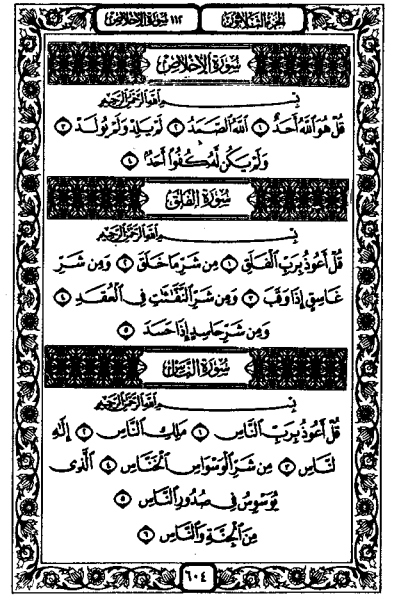 الجزء الثلاثون
١١٢ سورة الإخلاص
سورة الإخلاص
بسم الله الرحمن الرحيم
قُلْ هُوَ ٱللَّهُ أَحَدٌ ١ ٱللَّهُ ٱلصَّمَدُ ٢ لَمْ يَلِدْ وَلَمْ يُولَدْ ٣
وَلَمْ يَكُن لَّهُۥ كُفُوًا أَحَدٌۢ ٤
سورة الفلق
بسم الله الرحمن الرحيم
قُلْ أَعُوذُ بِرَبِّ ٱلْفَلَقِ ١ مِن شَرِّ مَا خَلَقَ ٢ وَمِن شَرِّ
غَاسِقٍ إِذَا وَقَبَ ٣ وَمِن شَرِّ ٱلنَّفَّٰثَٰتِ فِى ٱلْعُقَدِ ٤
وَمِن شَرِّ حَاسِدٍ إِذَا حَسَدَ ٥
سورة الناس
بسم الله الرحمن الرحيم
قُلْ أَعُوذُ بِرَبِّ ٱلنَّاسِ ١ مَلِكِ ٱلنَّاسِ ٢ إِلَٰهِ
ٱلنَّاسِ ٣ مِن شَرِّ ٱلْوَسْوَاسِ ٱلْخَنَّاسِ ٤ ٱلَّذِى
يُوَسْوِسُ فِى صُدُورِ ٱلنَّاسِ ٥
مِنَ ٱلْجِنَّةِ وَٱلنَّاسِ ٦
٦٠٤